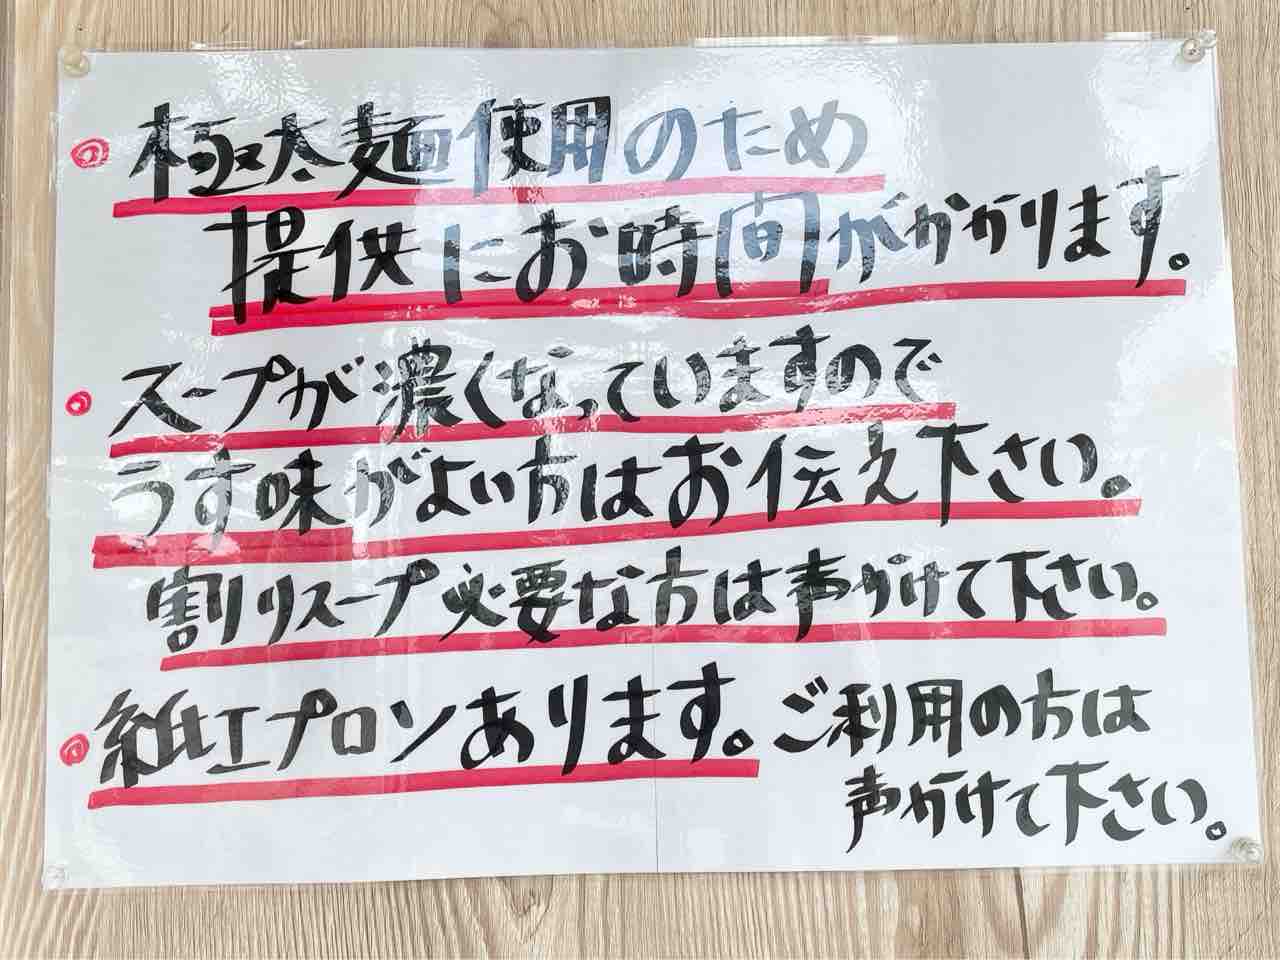 極太麺使用のため
提供にお時間がかかります。
スープが濃くなっていますので
うす味がよい方はお伝え下さい。
割りスープ必要な方は声かけて下さい。
紙エプロンあります。ご利用の方は
声かけて下さい。